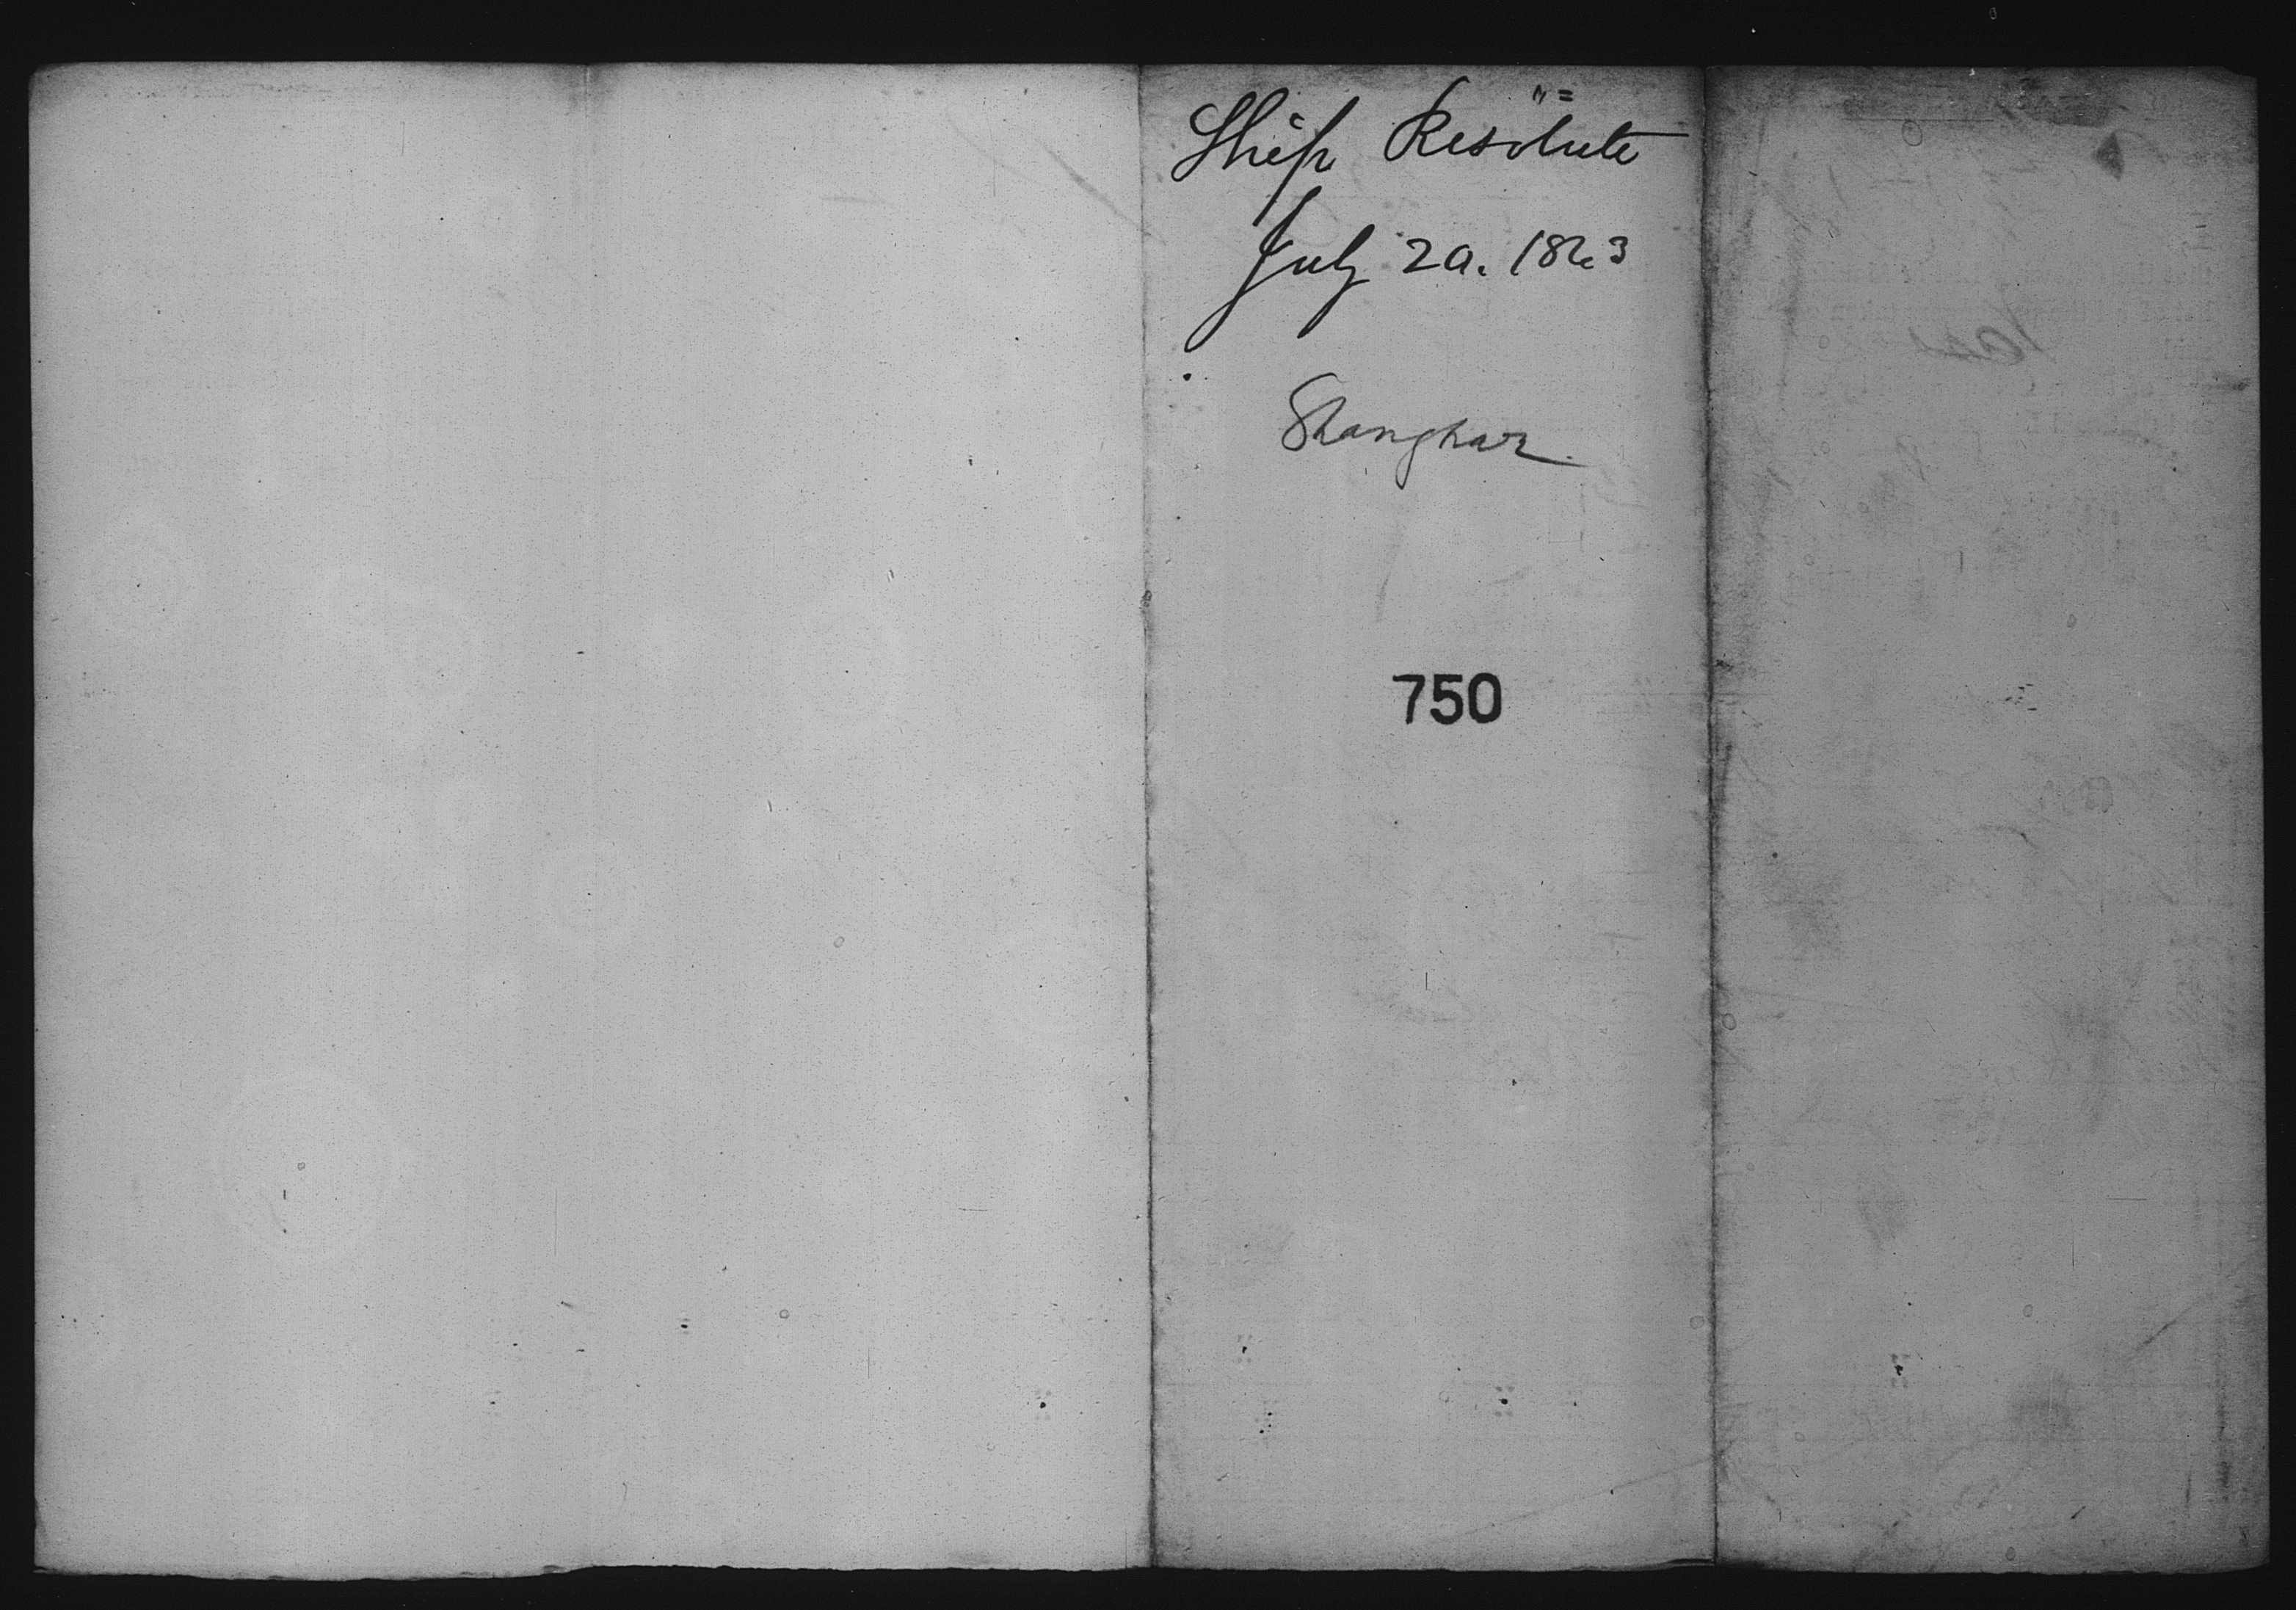 Ship Resolute
July 20. 1863
Shanghai
750